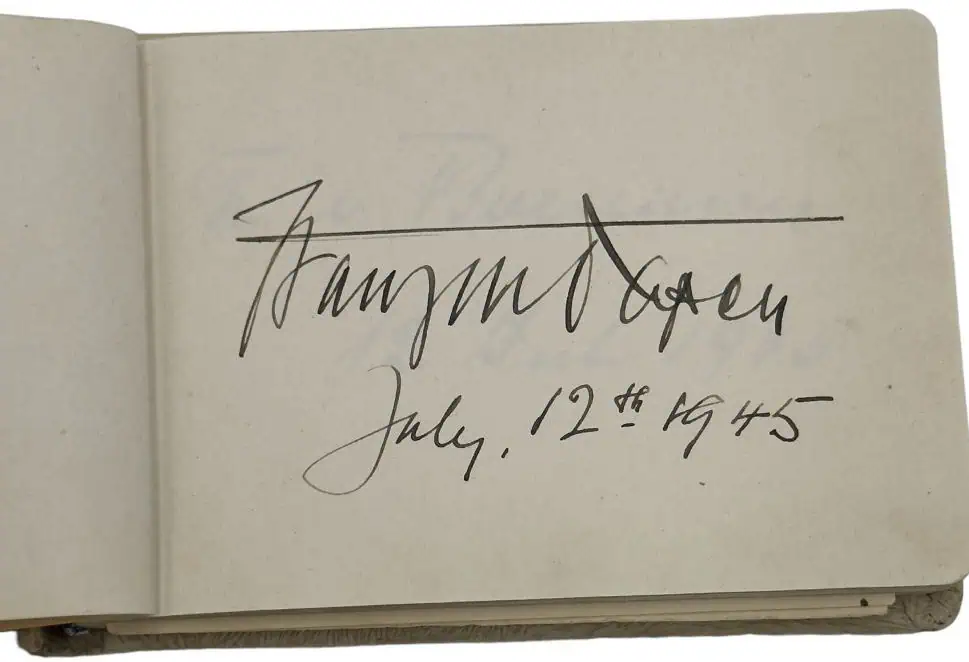 Franz von Papen
July, 12th 1945